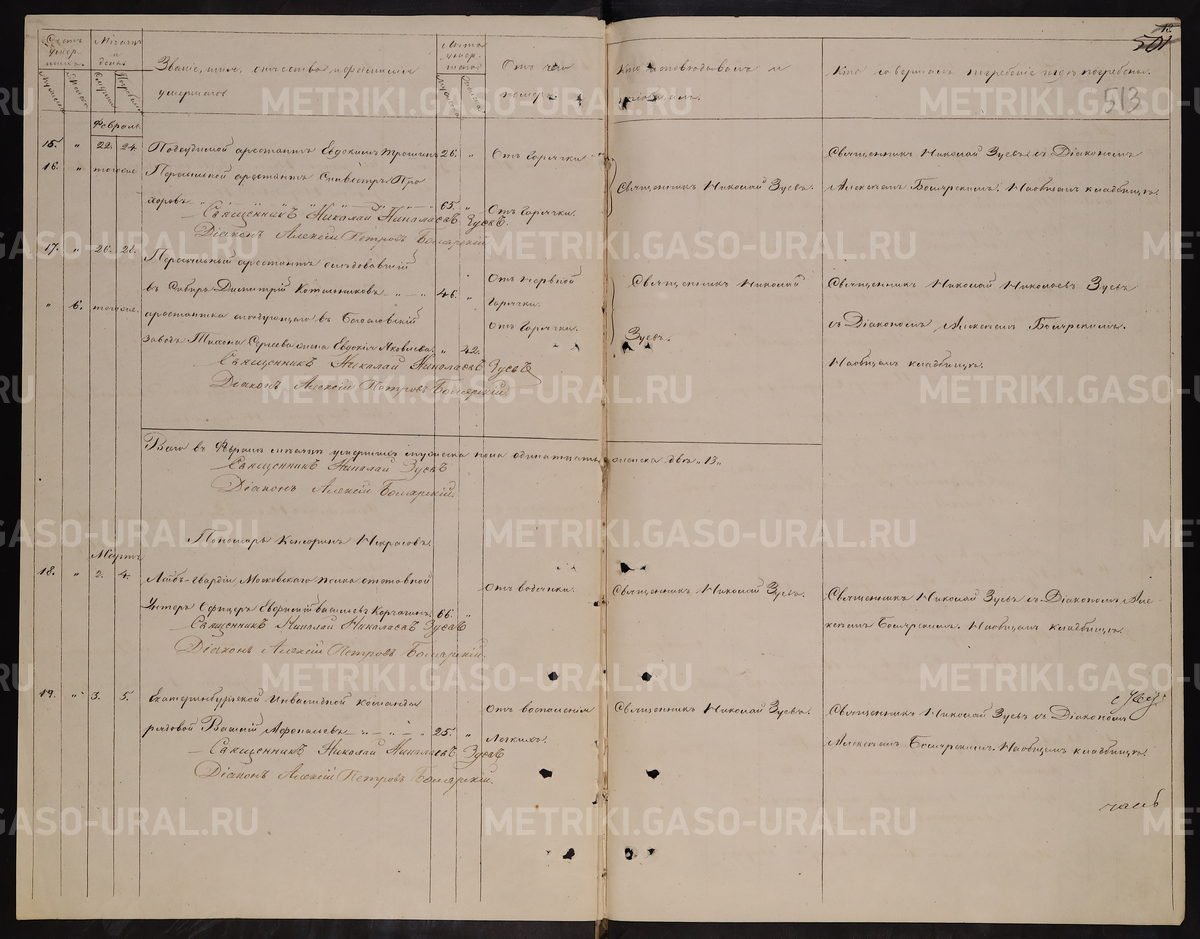 501
513
Счетъ умер-шихъ.
Мѣсяцъ и день.
Званіе, имя, отчество и фамилія
умершаго
Лѣта умер-шаго
Отъ чего
померъ
Кто исповѣдывалъ и
пріобщалъ.
Кто совершалъ погребеніе и гдѣ погребены.
Мужеска
Женска
Смерти
Погребенія
Мужеска
Женска
Февраль
15. " 22. 24. Подсудимой арестантъ Евдокимъ Трошинъ 26. " Отъ горячки
Священникъ Николай Зуевъ съ Діакономъ
16. " тогоже Пересыльной арестантъ Силвестръ Про
Священникъ Николай Зуевъ.
Алексѣемъ Боярскимъ. На общемъ кладбищѣ.
хоровъ 65. " Отъ горячки.
Священникъ Николай Николаевъ Зуевъ.
Діаконъ Алексій Петровъ Боярскій
17. " 26. 28. Пересыльный арестантъ слѣдовавшій
въ Сибирь Димитрій Котельниковъ 46. " Отъ нервной
горячки.
Священникъ Николай
Зуевъ.
Священникъ Николай Николаевъ Зуевъ
съ Діакономъ Алексѣемъ Боярскимъ.
На общемъ кладбищѣ.
" 6. тогоже арестантка слѣдующаго въ Богословскій
Отъ горячки.
заводъ Сергеева жена Евдокія Яковлева. " 42.
Священникъ Николай Николаевъ Зуевъ
Діаконъ Алексій Петровъ Боярскій
Всего въ Февралѣ мѣсяцѣ умершихъ мужеска пола одинатцать женска двѣ "13"
Священникъ Николай Зуевъ
Діаконъ Алексій Боярскій.
Пономарь Кенсоринъ Некрасовъ.
Мартъ
18. " 2. 4. Лейбъ-гвардіи Московскаго полка отставной
Отъ водянки.
Священникъ Николай Зуевъ.
Священникъ Николай Зуевъ съ Діакономъ Але-
Унтеръ Офицеръ Евфимій Васильевъ Корчагинъ 66. "
ксѣемъ Боярскимъ. На общемъ кладбищѣ
Священникъ Николай Николаевъ Зуевъ
Діаконъ Алексій Петровъ Боярскій.
19. " 3. 5. Екатеринбургской Инвалидной команды
Отъ воспаленія
Священникъ Николай Зуевъ.
Священникъ Николай Зуевъ съ Діакономъ
рядовой Афонасьевъ 25. " Легкихъ.
Алексѣемъ Боярскимъ. На общемъ кладбищѣ.
Священникъ Николай Николаевъ Зуевъ
Діаконъ Алексій Петровъ Боярскій.
METRIKI.GASO-URAL.RU